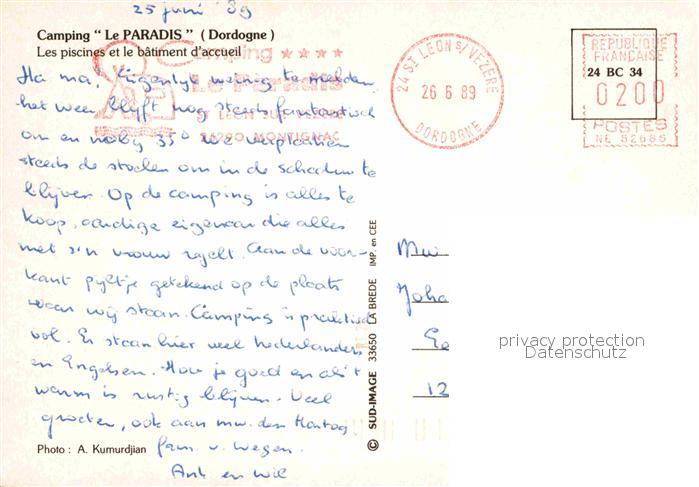 25 juni '89
Camping " Le PARADIS " ( Dordogne )
Les piscines et le bâtiment d'accueil
Camping ★★★★
Le Paradis
24290 MONTIGNAC
24 ST LEON S/ VEZERE
26 6 89
DORDOGNE
REPUBLIQUE
FRANCAISE
24 BC 34
0200
POSTES
NE 52686
Ha ma, Eigenlijk weinig te melden,
het weer blijft nog steeds fantastisch
om en nabij 35° We verplaatsen
steeds de stoelen om in de schaduw te
blijven. Op de camping is alles te
koop, aardige eigenaar die alles
met z'n vrouw regelt. Aan de voor-
kant pijltje getekend op de plaats
waar wij staan. Camping is praktisch
vol. Er staan hier veel Nederlanders
en Engelsen. Hou je goed en als 't
warm is rustig blijven. Veel
groeten, ook aan mw. den Hartog
fam. v. Wegen.
Ank en Wil
Photo : A. Kumurdjian
© SUD-IMAGE 33650 LA BREDE IMP. en CEE
Mw
Joha
12
privacy protection
Datenschutz